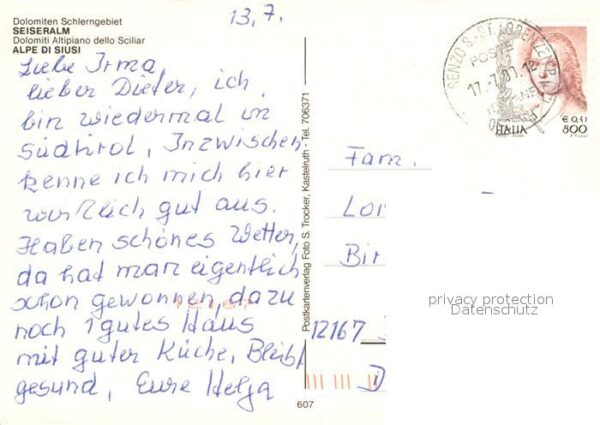 13.7.
Dolomiten Schlerngebiet
SEISERALM
Dolomiti Altipiano dello Sciliar
ALPE DI SIUSI
Liebe Irma,
lieber Dieter, ich
bin wiedermal in
Südtirol, Inzwischen
kenne ich mich hier
wirklich gut aus.
Haben schönes Wetter,
da hat man eigentlich
schon gewonnen, dazu
noch 1 gutes Haus
mit guter Küche, Bleibt
gesund, Eure Helga
Postkartenverlag Foto S. Trocker, Kastelruth - Tel. 706371
607
RENZO S.-ST. LORENZEN
POSTE
17.7.01.12
€ 0,41
ITALIA 800
Fam.
Lor
Bir
12167
D
privacy protection
Datenschutz